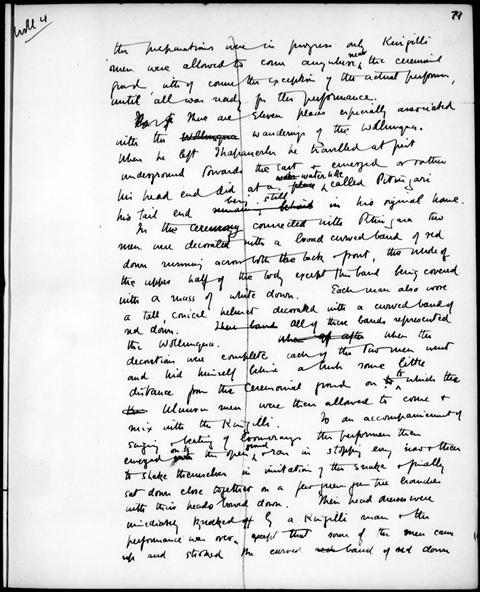 Woll 4
79
the preparations were in progress only Kingilli
men were allowed to come anywhere near the ceremonial
ground, with of course the exception of the actual performers,
until all was ready for the performance.
There are eleven places especially associated
with the Wollunqua wanderings of the Wollunqua.
When he left Thapauerlu he travelled at first
underground towards the East & emerged or rather
his head end did at a water hole place called Pitingari
his tail end being still remaining behind in his original home.
In the Ceremony connected with Pitingara two
men were decorated with a broad curved band of red
down running across both the back & front, the whole of
the upper half of the body except this band being covered
with a mass of white down. Each man also wore
a tall, conical helmet decorated with a curved band of
red down. These bands all of these bands represented
the Wollunqua. When the
decorations were complete each of the two men went
and hid himself behind a bush some little
distance from the ceremonial ground on to which the
Uluuru men were then allowed to come &
mix with the Kingilli. To an accompaniment of
singing & beating of boomerangs the performers then
emerged on to the open ground & ran in stopping every now & then
to shake themselves in imitation of the snake & finally
sat down close together on a few green gum tree branches
with their heads bowed down. Their head dresses were
immediately knocked off by a Kingilli man & the
performance was over, except that some of the men came
up and stroked the curved band of red down